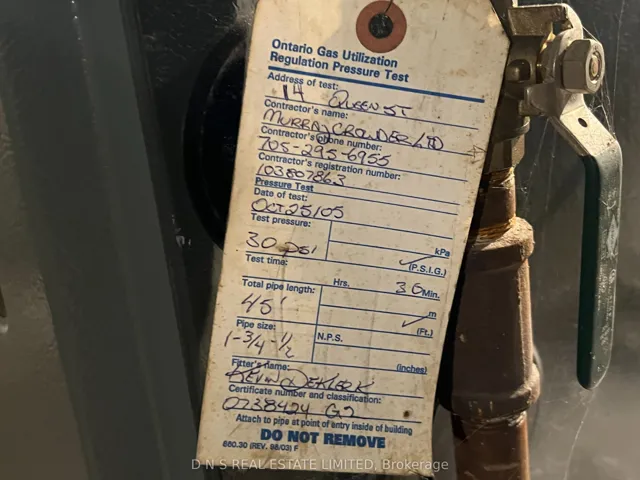 Ontario Gas Utilization
Regulation Pressure Test
Address of test:
14 QUEEN ST
Contractor's name:
MURRAY CROWDER LTD
Contractor's phone number:
705-295-6955
Contractor's registration number:
103807863
Pressure Test
Date of test:
OCT 25/05
Test pressure:
30 PSI
kPa
✓ (P.S.I.G.)
Test time:
Hrs. 30 Min.
Total pipe length:
45'
m
✓ (Ft.)
Pipe size:
1-3/4-1/2
N.P.S.
(inches)
Fitter's name:
KEVIN
Certificate number and classification:
0738424 G2
Attach to pipe at point of entry inside of building
DO NOT REMOVE
660.30 (REV. 98/03) F
D N S REAL ESTATE LIMITED, Brokerage